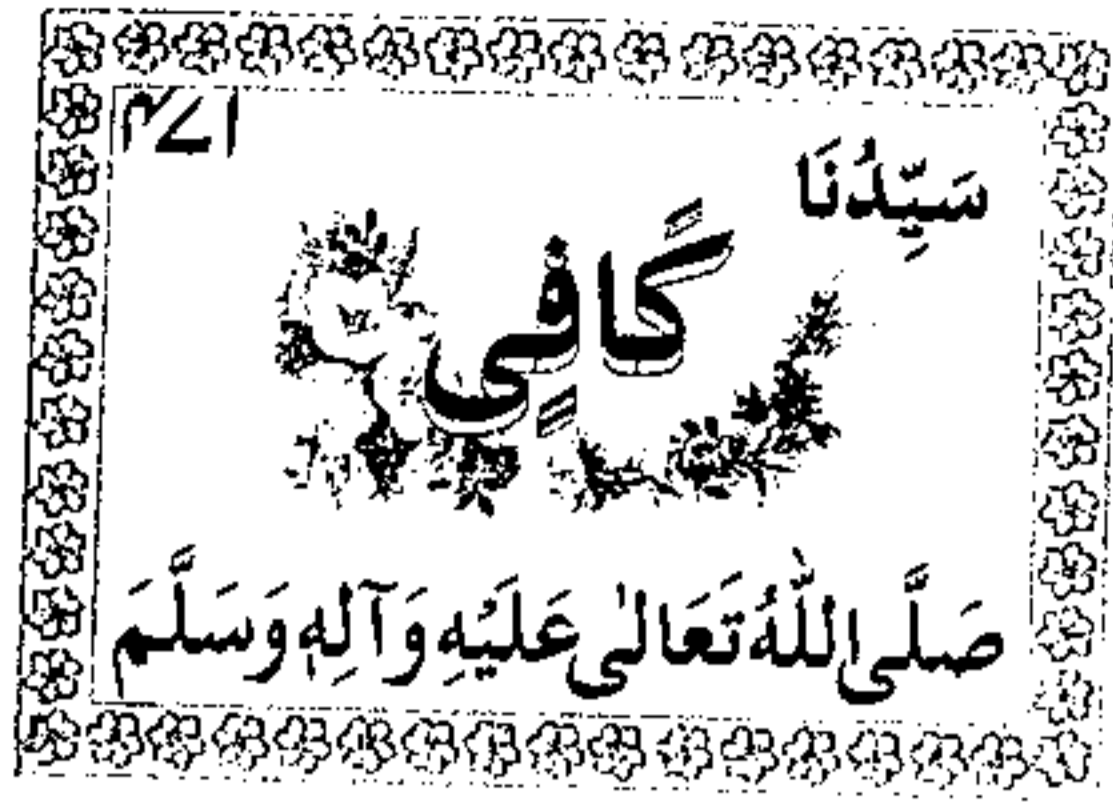 سَيِّدُنَا
كَافِی
صَلَّى اللّٰهُ تَعَالٰى عَلَيْهِ وَآلِهٖ وَسَلَّمَ